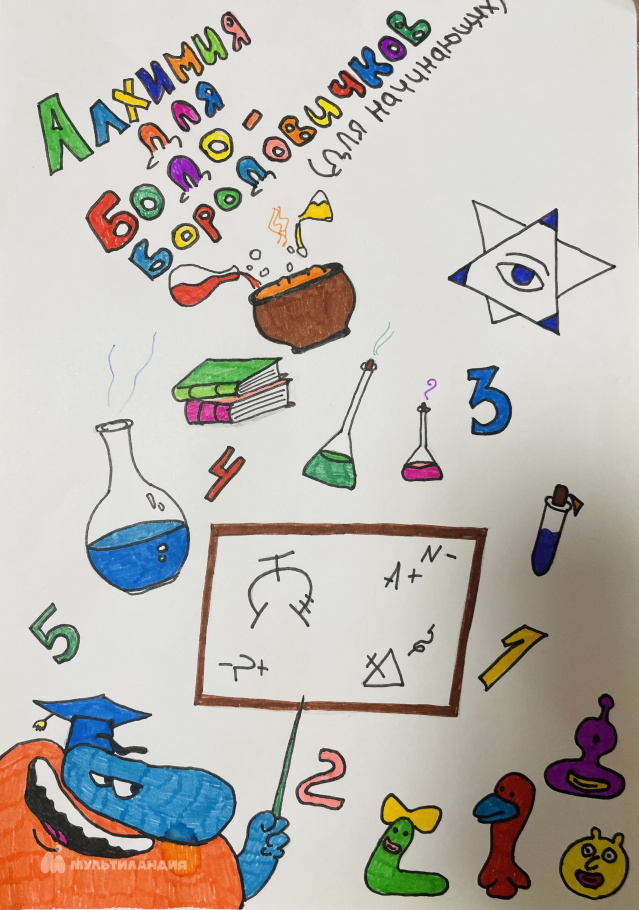 Алхимия
для
Бодо-
Бородовичков
(для начинающих)
3
4
A+ N-
5
1
2
МУЛЬТИЛАНДИЯ